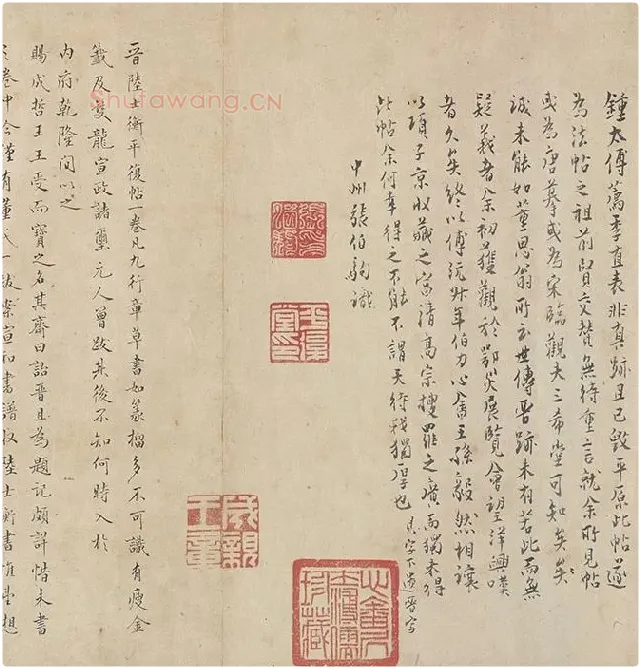 鍾太傅薦季直表非真跡且已毀平原此帖遂
為法帖之祖前賢交贊無待重言就余所見帖
或為唐摹或為宋臨觀夫三希堂可知矣矣
誠未能如董思翁所云世傳晉跡未有若此而無
疑義者余初獲觀於鄂災展覽會望洋興嘆
者久矣終以傅沅叔年伯力心畬王孫毅然相讓
以項子京收藏之富清高宗搜羅之廣而獨未得
此帖余何幸得之不能不謂天待我獨厚也 真字下遺晉字
中州張伯駒識
成親王章
晉陸士衡平復帖一卷凡九行章草書如篆籀多不可識有瘦金
籤及雙龍宣政諸璽元人曾跋其後不知何時入於
內府乾隆間以之
賜成哲王王受而寶之名其齋曰詒晉且為題記頗詳惜未書
卷中今僅有董氏一跋案宣和書譜收陸士衡書惟望想
Shufawang.CN